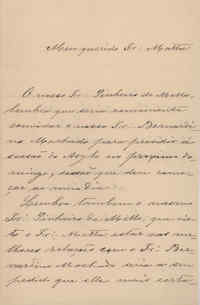 Meu querido Sr. Motta
O nosso Sr. Pinheiro de Mello
lembra que seria conveniente
convidar o nosso Sr. Bernardi
no Machado para presidir á
sessão do Asylo no proximo do
mingo, sessão que deve come
çar ao meio dia.
Lembra tambem o mesmo
Sr. Pinheiro de Mello, que vis
to o Sr. Motta estar nas me
lhores relações com o Sr. Ber
nardino Machado seria a seu
pedido que elle mais certa